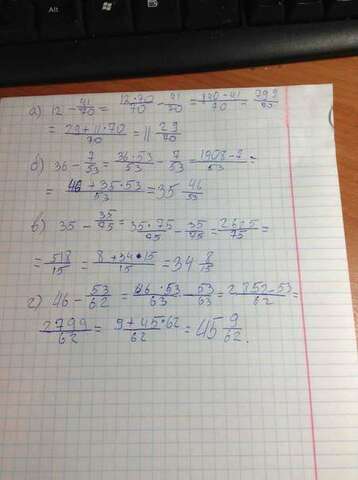 а) 12 - 41/70 = 12·70/70 - 41/70 = 840-41/70 = 799/70
= 29+11·70/70 = 11 29/70
б) 36 - 7/53 = 36·53/53 - 7/53 = 1908-7/53 =
= 46+35·53/53 = 35 46/53
в) 35 - 35/75 = 35·75/75 - 35/75 = 2625/75 =
= 518/15 = 8+34·15/15 = 34 8/15
г) 46 - 53/62 = 46·53/63 - 53/63 = 2852-53/62 =
2799/62 = 9+45·62/62 = 45 9/62.